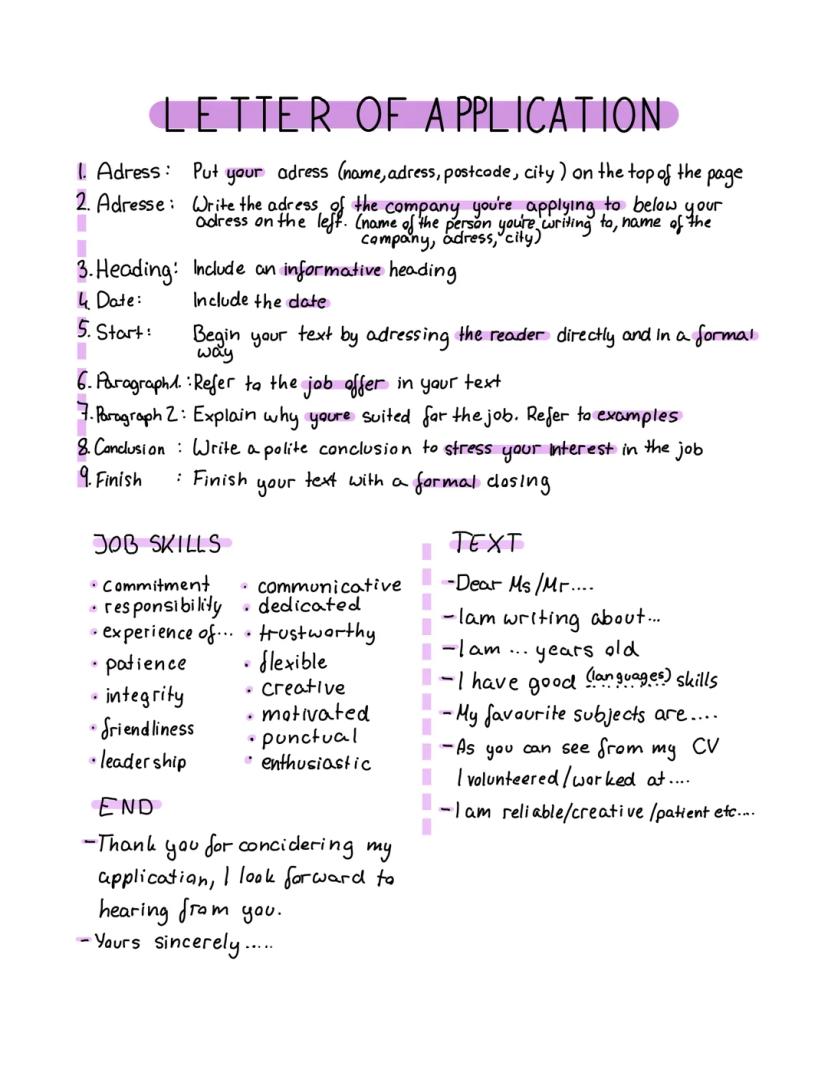 LETTER OF APPLICATION
1. Adress: Put your adress (name, adress, postcode, city) on the top of the page
2. Adresse: Write the adress of the company you're applying to below your
adress on the left. (name of the person you're writing to, name of the
company, adress, city)
3. Heading: Include an informative heading
4. Date: Include the date
5. Start: Begin your text by adressing the reader directly and in a formal
way
6. Paragraph 1.: Refer to the job offer in your text
7. Paragraph 2: Explain why youre suited for the job. Refer to examples
8. Conclusion : Write a polite conclusion to stress your interest in the job
9. Finish : Finish your text with a formal closing
JOB SKILLS
• commitment
• responsibility
• experience of...
• patience
• integrity
• friendliness
• leadership
• communicative
• dedicated
• trustworthy
• flexible
• creative
• motivated
• punctual
• enthusiastic
END
- Thank you for concidering my
application, I look forward to
hearing from you.
- Yours sincerely .....
TEXT
- Dear Ms/Mr....
- I am writing about...
- I am ... years old
- I have good (languages) skills
- My favourite subjects are....
- As you can see from my CV
I volunteered/worked at....
- I am reliable/creative/patient etc....